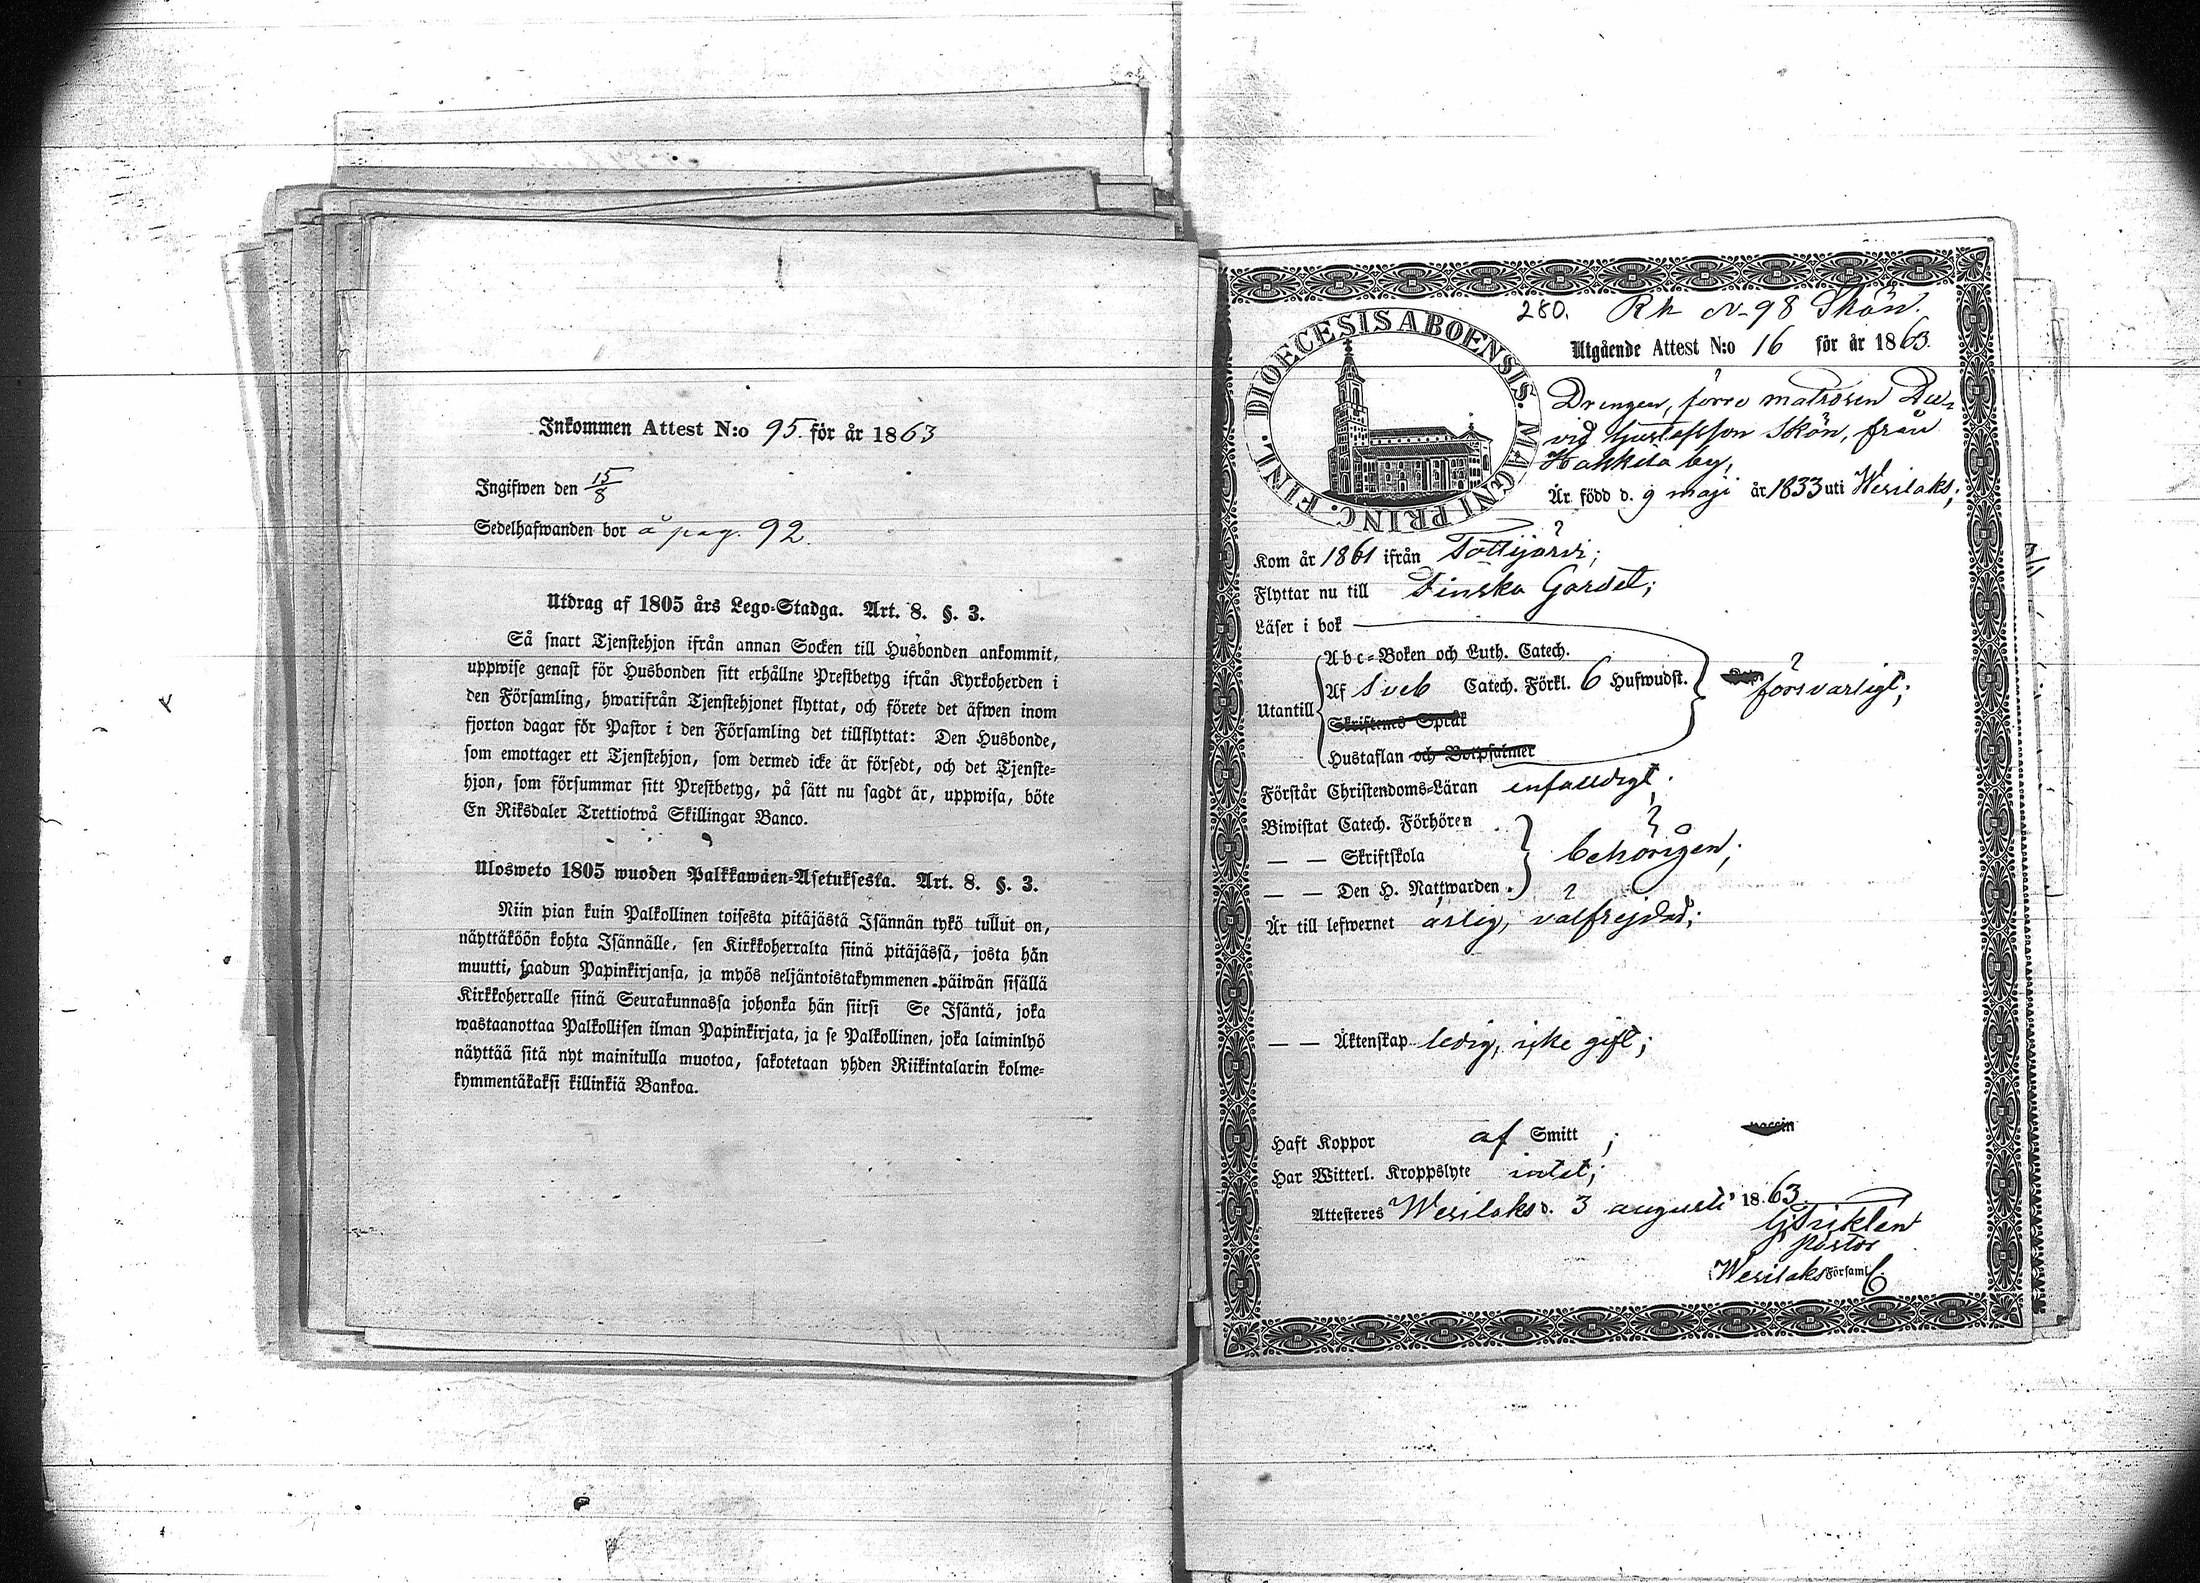 Inkommen Attest N:o 95. för år 1863
Ingifwen den 15/8
Sedelhafwanden bor å pag. 92.
Utdrag af 1805 års Lego-Stadga. Art. 8. §. 3.
Så snart Tjenstehjon ifrån annan Socken till Husbonden ankommit,
uppwise genast för Husbonden sitt erhållne Prestbetyg ifrån Kyrkoherden i
den Församling, hwarifrån Tjenstehjonet flyttat, och förete det äfwen inom
fjorton dagar för Pastor i den Församling det tillflyttat: Den Husbonde,
som emottager ett Tjenstehjon, som dermed icke är försedt, och det Tjenste-
hjon, som försummar sitt Prestbetyg, på sätt nu sagdt är, uppwisa, böte
En Riksdaler Trettiotwå Skillingar Banco.
Ulosweto 1805 wuoden Palkkawäen-Asetuksesta. Art. 8. §. 3.
Niin pian kuin Palkollinen toisesta pitäjästä Isännän tykö tullut on,
näyttäköön kohta Isännälle, sen Kirkkoherralta siinä pitäjässä, josta hän
muutti, saadun Papinkirjansa, ja myös neljäntoistakymmenen päiwän sisällä
Kirkkoherralle siinä Seurakunnassa johonka hän siirsi Se Isäntä, joka
wastaanottaa Palkollisen ilman Papinkirjata, ja se Palkollinen, joka laiminlyö
näyttää sitä nyt mainitulla muotoa, sakotetaan yhden Riikintalarin kolme-
kymmentäkaksi killinkiä Bankoa.
280. Rk N 98 Skön.
FINL. DIOECESIS ABOENSIS. MAGNI PRINC.
Utgående Attest N:o 16 för år 1863.
Drengen, förre matrosen Da-
vid Gustafsson Skön, från
Hakkila by,
Är född d. 9 maji år 1833 uti Wesilaks;
Kom år 1861 ifrån Tottijärvi;
Flyttar nu till Finska Gardet;
Läser i bok
Abc-Boken och Luth. Catech.
Utantill Af Sveb Catech. Förkl. 6 Hufwudst. försvarligt;
Skriftenes Språk
Hustaflan och Botpsalmer
Förstår Christendoms-Läran enfaldigt;
Biwistat Catech. Förhören
— — Skriftskola behörigen;
— — Den H. Nattwarden.
Är till lefwernet ärlig, välfrejdad;
— — Äktenskap ledig, icke gift;
Haft Koppor af Smitt;
Har Witterl. Kroppslyte intet;
Attesteres Wesilaks d. 3 augusti 1863.
Pastor
Wesilaks Församl.